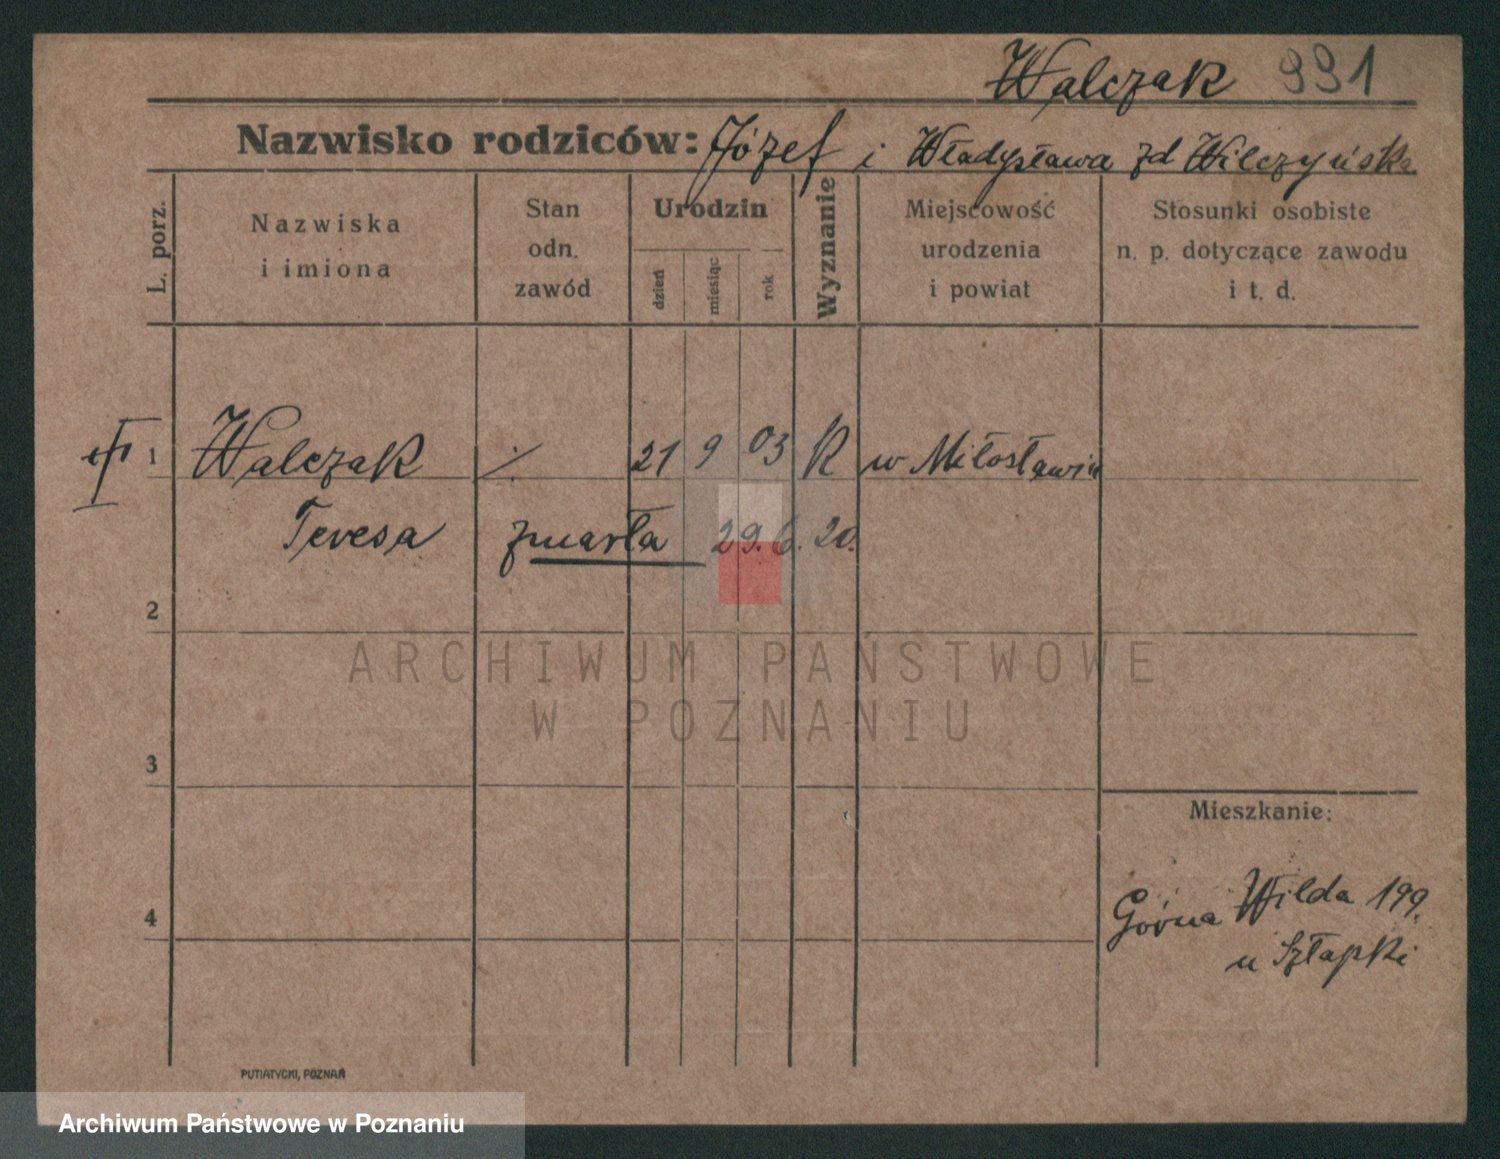 Walczak 991
Nazwisko rodziców: Józef i Władysława zd Wilczyńska
L. porz.
Nazwiska
i imiona
Stan
odn.
zawód
Urodzin
dzień
miesiąc
rok
Wyznanie
Miejscowość
urodzenia
i powiat
Stosunki osobiste
n. p. dotyczące zawodu
i t. d.
1 Walczak ·/. 21 9 03 R w Miłosławiu
Teresa zmarła 29.6.20.
2
ARCHIWUM PAŃSTWOWE
W POZNANIU
3
Mieszkanie:
4
Górna Wilda 199.
u Szłapki
PUTIATYCKI, POZNAŃ
Archiwum Państwowe w Poznaniu